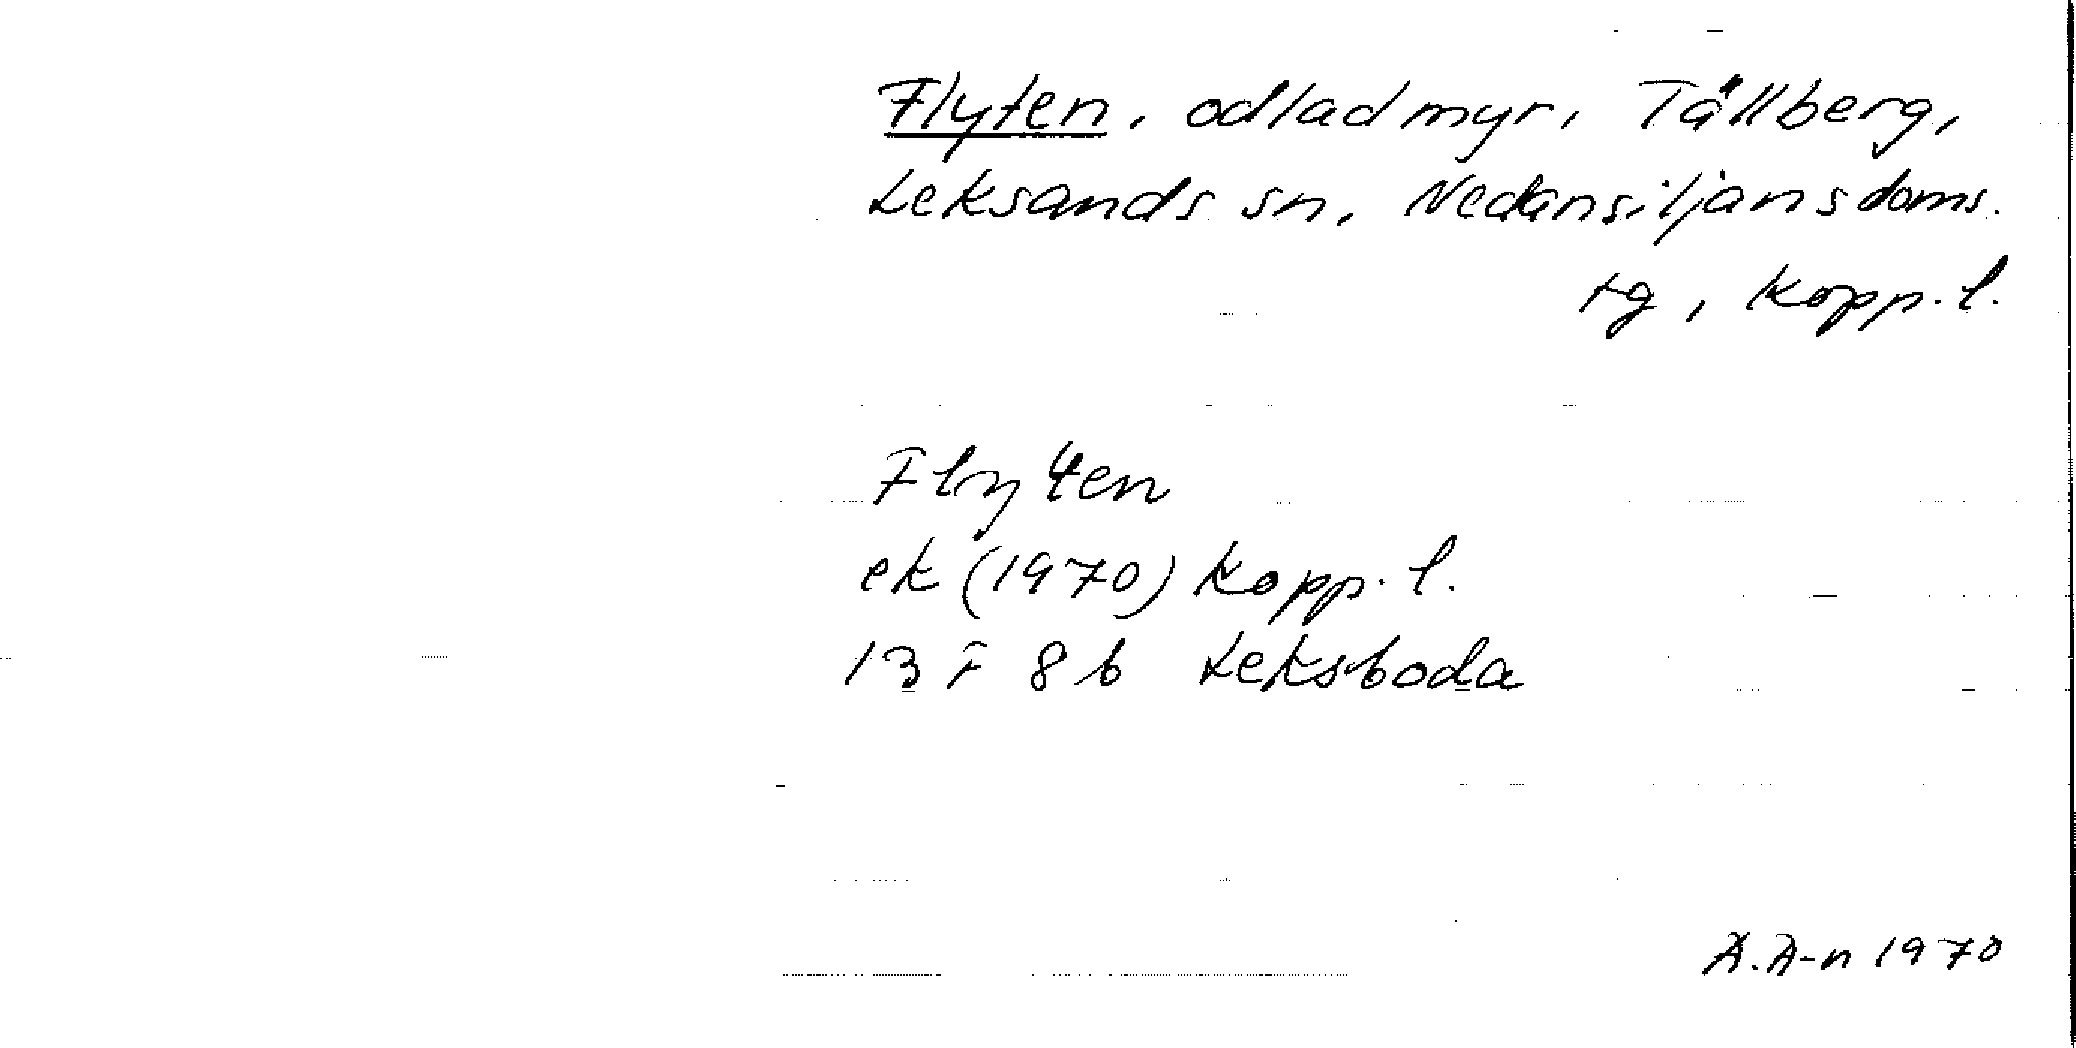 Flyten, odlad myr, Tällberg,
Leksands sn, Nedansiljans doms.
tg, Kopp. l.
Flyten
ek (1970) Kopp. l.
13 F 8 b Leksboda
A. A-n 1970